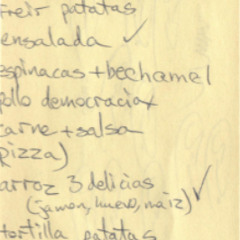 Freir patatas
ensalada ✓
espinacas + bechamel
pollo democracia x
carne + salsa
pizza)
arroz 3 delicias ✓
(jamon, huevo, maiz)
tortilla patatas